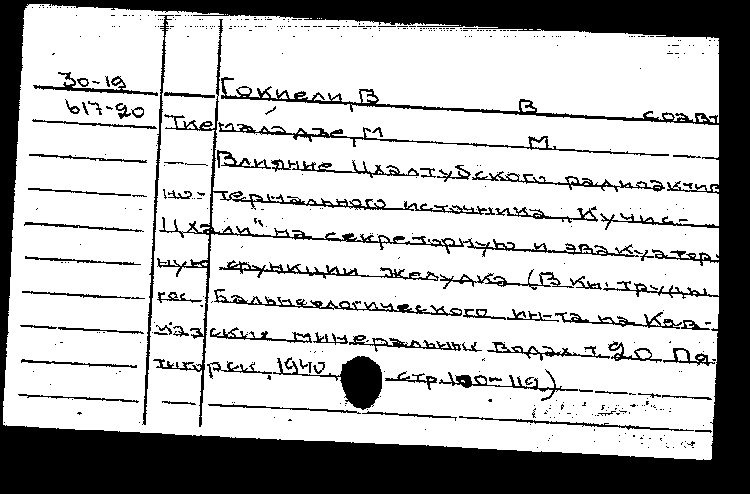 30-19 Гокиели, В В соавт
617-20 Ткемаладзе, М М.
Влияние Цхалтубского радиоактив
но-термального источника „Кучис-
Цхали" на секреторную и эвакуатор
ную функции желудка (В кн: труды
гос. Бальнеологического ин-та на Кав-
казских минеральных водах т. 20 Пя-
тигорск, 1940, стр. 110-119)